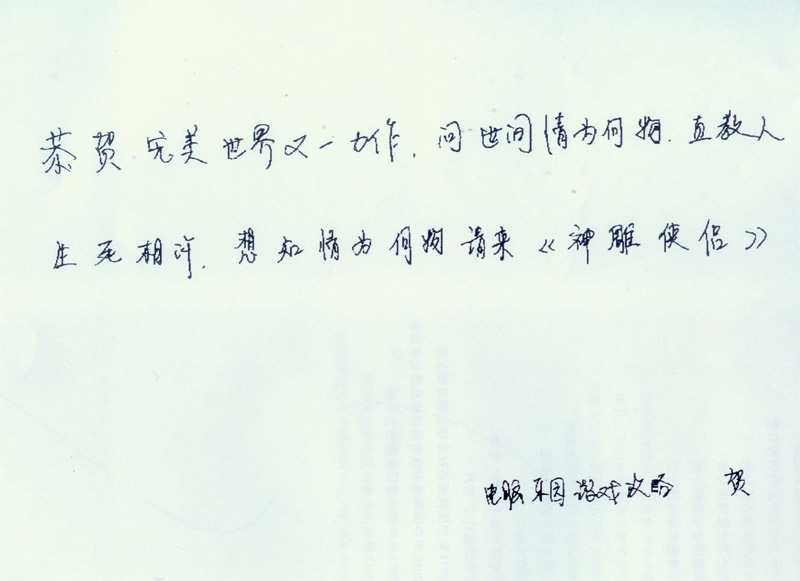 恭贺完美世界又一力作,问世间情为何物.直教人
生死相许.想知情为何物请来《神雕侠侣》
电脑乐园游戏攻略 贺